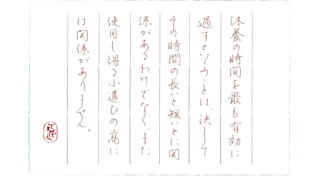 休養の時間を最も有効に
過すということは、決して
その時間の長いと短いとに関
係があるわけでなく、また
使用し得る小遣ひの高に
は関係がありません。